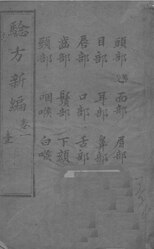 頭部 面部 眉部
目部 耳部 鼻部
唇部 口部 舌部
齒部 鬚部 下頦
頸部 咽喉 白喉
驗方新編 卷壹